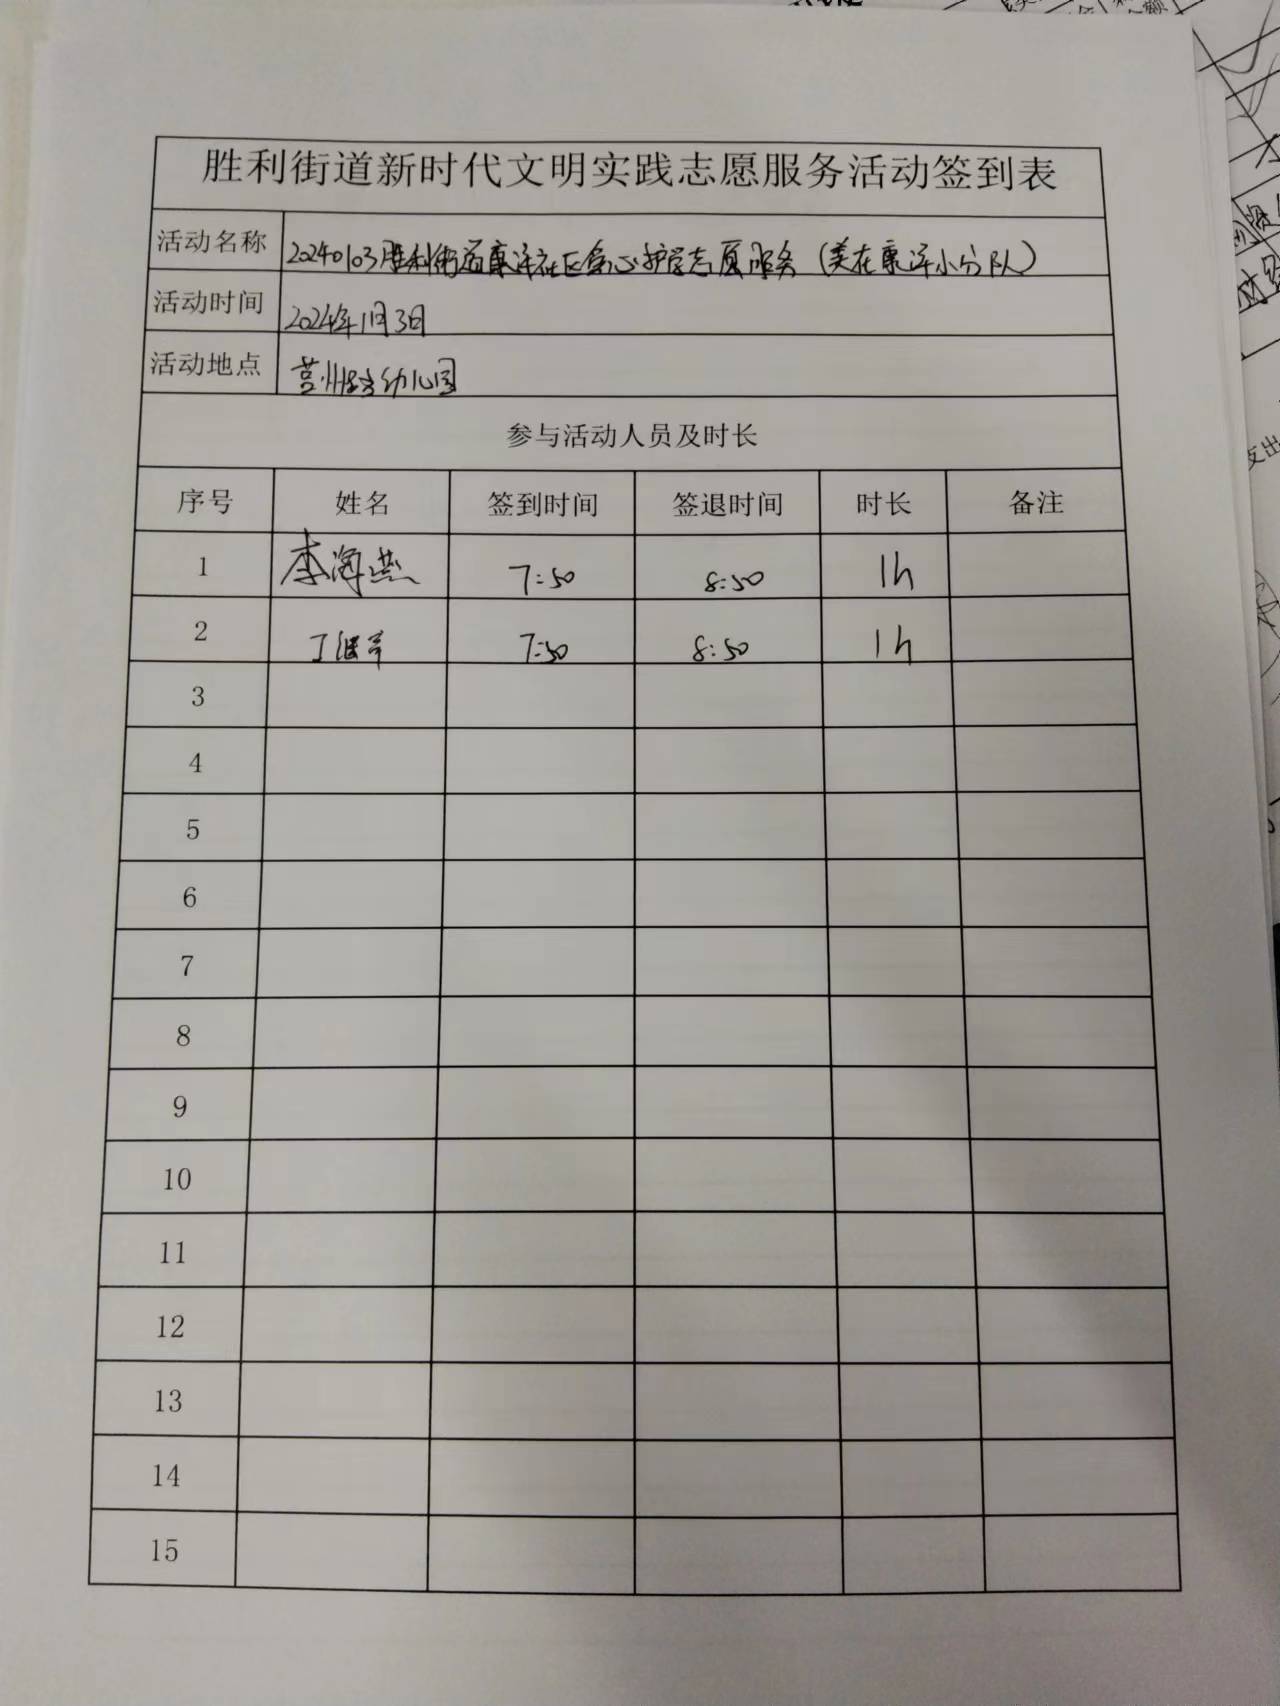 胜利街道新时代文明实践志愿服务活动签到表
活动名称 20240103胜利街道康洋社区童心护学志愿服务（美在康洋小分队）
活动时间 2024年1月3日
活动地点 莒州路幼儿园
参与活动人员及时长
序号 姓名 签到时间 签退时间 时长 备注
1 李海燕 7:50 8:50 1h
2 丁 7:50 8:50 1h
3
4
5
6
7
8
9
10
11
12
13
14
15
支出